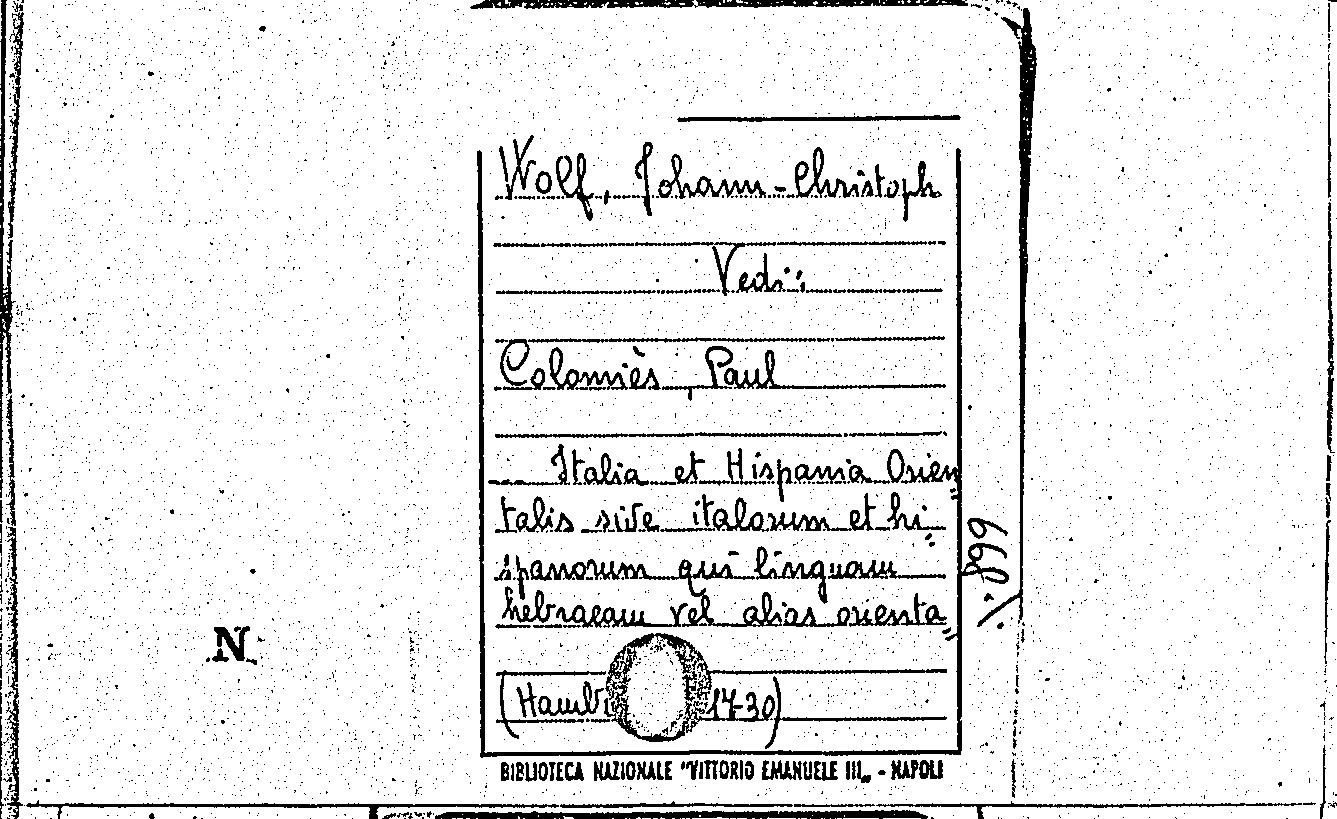 Wolf, Johann-Christoph
Vedi:
Colomiès, Paul
Italia et Hispania Orien
talis sive italorum et hi
spanorum qui linguam
hebraeam vel alias orienta
(Hamb 1730)
BIBLIOTECA NAZIONALE "VITTORIO EMANUELE III„ - NAPOLI
N